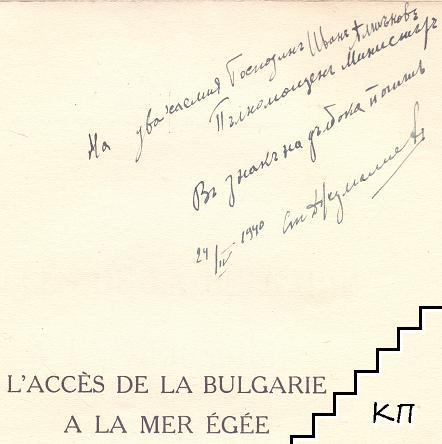 На уважаемия Господинъ Иванъ Алтъновъ
Пълномощенъ Министъръ
Въ знакъ на дълбока почить
24/IV 1940 Ст. Джумалиевъ
L'ACCÈS DE LA BULGARIE
A LA MER ÉGÉE
КП